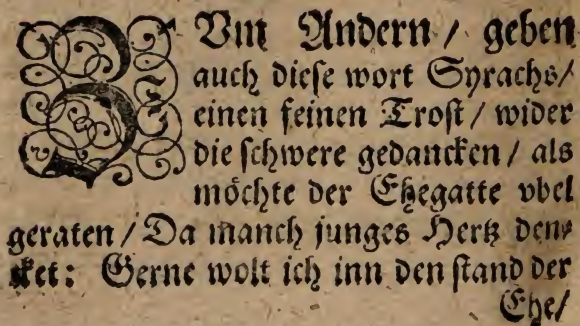 ZVm Andern / geben
auch diese wort Syrachs /
einen feinen Trost / wider
die schwere gedancken / als
möchte der Ehegatte vbel
geraten / Da manch junges Hertz den⸗
cket: Gerne wolt ich inn den stand der
Ehe /